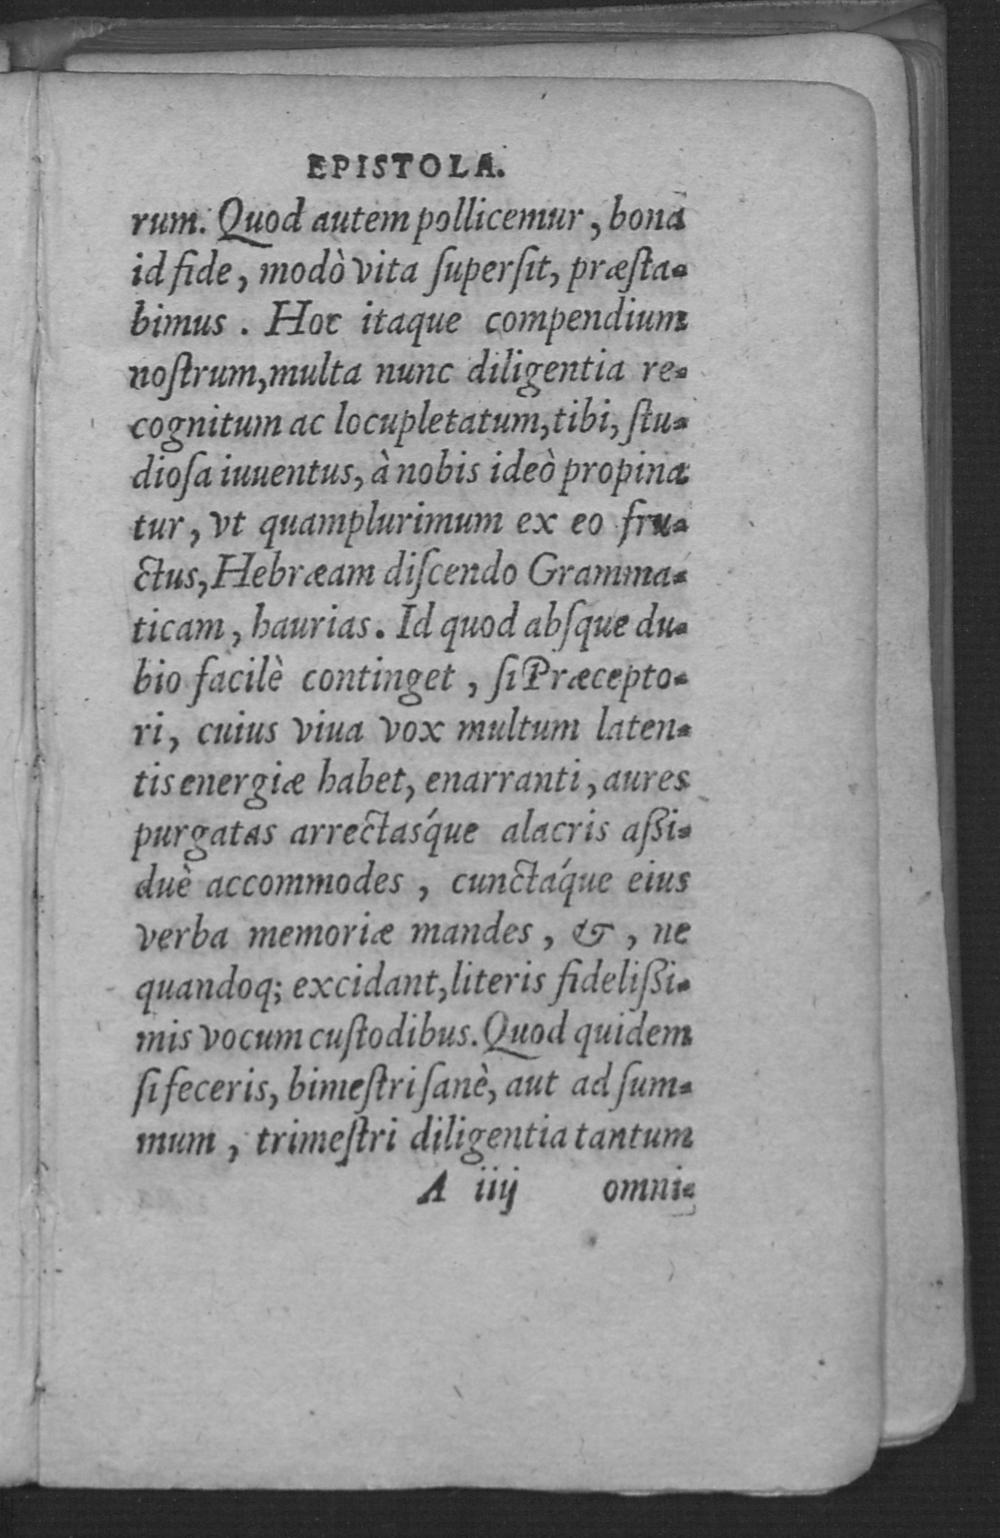 EPISTOLA.
rum. Quod autem pollicemur, bona
id fide, modò vita ſuperſit, præſta-
bimus. Hoc itaque compendium
noſtrum, multa nunc diligentia re-
cognitum ac locupletatum, tibi, ſtu-
dioſa iuuentus, à nobis ideò propina
tur, vt quamplurimum ex eo fru-
ctus, Hebræam diſcendo Gramma-
ticam, haurias. Id quod abſque du-
bio facilè continget, ſi Præcepto-
ri, cuius viua vox multum laten-
tis energiæ habet, enarranti, aures
purgatas arrectasq́ue alacris aßi-
duè accommodes, cunctáque eius
verba memoriæ mandes, &, ne
quandoq; excidant, literis fidelißi-
mis vocum cuſtodibus. Quod quidem
ſi feceris, bimeſtri ſanè, aut ad ſum-
mum, trimeſtri diligentia tantum
A iiij omni-